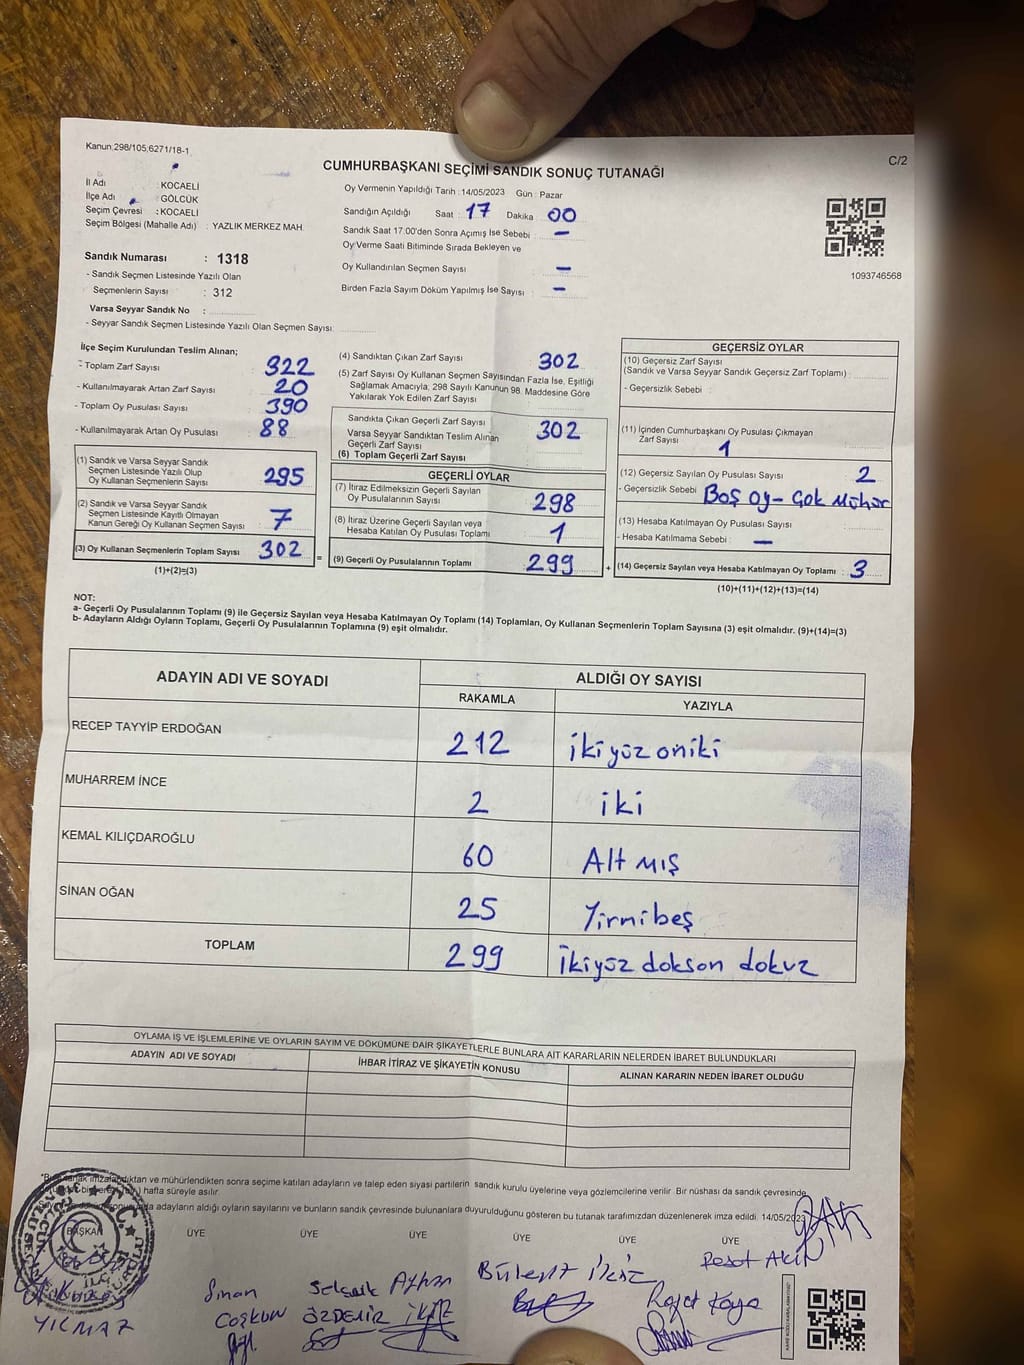 Kanun;298/105;6271/18-1
C/2
CUMHURBAŞKANI SEÇİMİ SANDIK SONUÇ TUTANAĞI
İl Adı : KOCAELİ
İlçe Adı : GÖLCÜK
Seçim Çevresi : KOCAELİ
Seçim Bölgesi (Mahalle Adı) : YAZLIK MERKEZ MAH.
Oy Vermenin Yapıldığı Tarih : 14/05/2023 Gün : Pazar
Sandığın Açıldığı Saat : 17 Dakika 00
Sandık Saat 17:00'den Sonra Açımış İse Sebebi : –
Oy Verme Saati Bitiminde Sırada Bekleyen ve
Oy Kullandırılan Seçmen Sayısı –
Birden Fazla Sayım Döküm Yapılmış İse Sayısı –
1093746568
Sandık Numarası : 1318
- Sandık Seçmen Listesinde Yazılı Olan
Seçmenlerin Sayısı : 312
Varsa Seyyar Sandık No :
- Seyyar Sandık Seçmen Listesinde Yazılı Olan Seçmen Sayısı:
İlçe Seçim Kurulundan Teslim Alınan;
- Toplam Zarf Sayısı 322
- Kullanılmayarak Artan Zarf Sayısı 20
- Toplam Oy Pusulası Sayısı 390
- Kullanılmayarak Artan Oy Pusulası 88
(1) Sandık ve Varsa Seyyar Sandık
Seçmen Listesinde Yazılı Olup
Oy Kullanan Seçmenlerin Sayısı 295
(2) Sandık ve Varsa Seyyar Sandık
Seçmen Listesinde Kayıtlı Olmayan
Kanun Gereği Oy Kullanan Seçmen Sayısı 7
(3) Oy Kullanan Seçmenlerin Toplam Sayısı 302 =
(1)+(2)=(3)
(4) Sandıktan Çıkan Zarf Sayısı 302
(5) Zarf Sayısı Oy Kullanan Seçmen Sayısından Fazla İse, Eşitliği
Sağlamak Amacıyla; 298 Sayılı Kanunun 98. Maddesine Göre
Yakılarak Yok Edilen Zarf Sayısı
Sandıkta Çıkan Geçerli Zarf Sayısı 302
Varsa Seyyar Sandıktan Teslim Alınan
Geçerli Zarf Sayısı
(6) Toplam Geçerli Zarf Sayısı
GEÇERLİ OYLAR
(7) İtiraz Edilmeksizin Geçerli Sayılan
Oy Pusulalarının Sayısı 298
(8) İtiraz Üzerine Geçerli Sayılan veya
Hesaba Katılan Oy Pusulası Toplamı 1
(9) Geçerli Oy Pusulalarının Toplamı 299 +
GEÇERSİZ OYLAR
(10) Geçersiz Zarf Sayısı
(Sandık ve Varsa Seyyar Sandık Geçersiz Zarf Toplamı)
- Geçersizlik Sebebi :
(11) İçinden Cumhurbaşkanı Oy Pusulası Çıkmayan
Zarf Sayısı 1
(12) Geçersiz Sayılan Oy Pusulası Sayısı 2
- Geçersizlik Sebebi Boş oy – Çok Mühür
(13) Hesaba Katılmayan Oy Pusulası Sayısı
- Hesaba Katılmama Sebebi : –
(14) Geçersiz Sayılan veya Hesaba Katılmayan Oy Toplamı : 3
(10)+(11)+(12)+(13)=(14)
NOT:
a- Geçerli Oy Pusulalarının Toplamı (9) ile Geçersiz Sayılan veya Hesaba Katılmayan Oy Toplamı (14) Toplamları, Oy Kullanan Seçmenlerin Toplam Sayısına (3) eşit olmalıdır. (9)+(14)=(3)
b- Adayların Aldığı Oyların Toplamı, Geçerli Oy Pusulalarının Toplamına (9) eşit olmalıdır.
ADAYIN ADI VE SOYADI
ALDIĞI OY SAYISI
RAKAMLA YAZIYLA
RECEP TAYYİP ERDOĞAN 212 ikiyüz oniki
MUHARREM İNCE 2 iki
KEMAL KILIÇDAROĞLU 60 Altmış
SİNAN OĞAN 25 Yirmibeş
TOPLAM 299 ikiyüz dokson dokuz
OYLAMA İŞ VE İŞLEMLERİNE VE OYLARIN SAYIM VE DÖKÜMÜNE DAİR ŞİKAYETLERLE BUNLARA AİT KARARLARIN NELERDEN İBARET BULUNDUKLARI
ADAYIN ADI VE SOYADI İHBAR İTİRAZ VE ŞİKAYETİN KONUSU ALINAN KARARIN NEDEN İBARET OLDUĞU
imzalandıktan ve mühürlendikten sonra seçime katılan adayların ve talep eden siyasi partilerin sandık kurulu üyelerine veya gözlemcilerine verilir. Bir nüshası da sandık çevresinde
hafta süreyle asılır.
adayların aldığı oyların sayılarını ve bunların sandık çevresinde bulunanlara duyurulduğunu gösteren bu tutanak tarafımızdan düzenlenerek imza edildi. 14/05/2023
BAŞKAN ÜYE ÜYE ÜYE ÜYE ÜYE ÜYE
T.C.
YILMAZ
Sinan
Coşkun
Selçuk
ÖZDEMİR
Ayhan
Bülent
Reşat Akin
Kaya